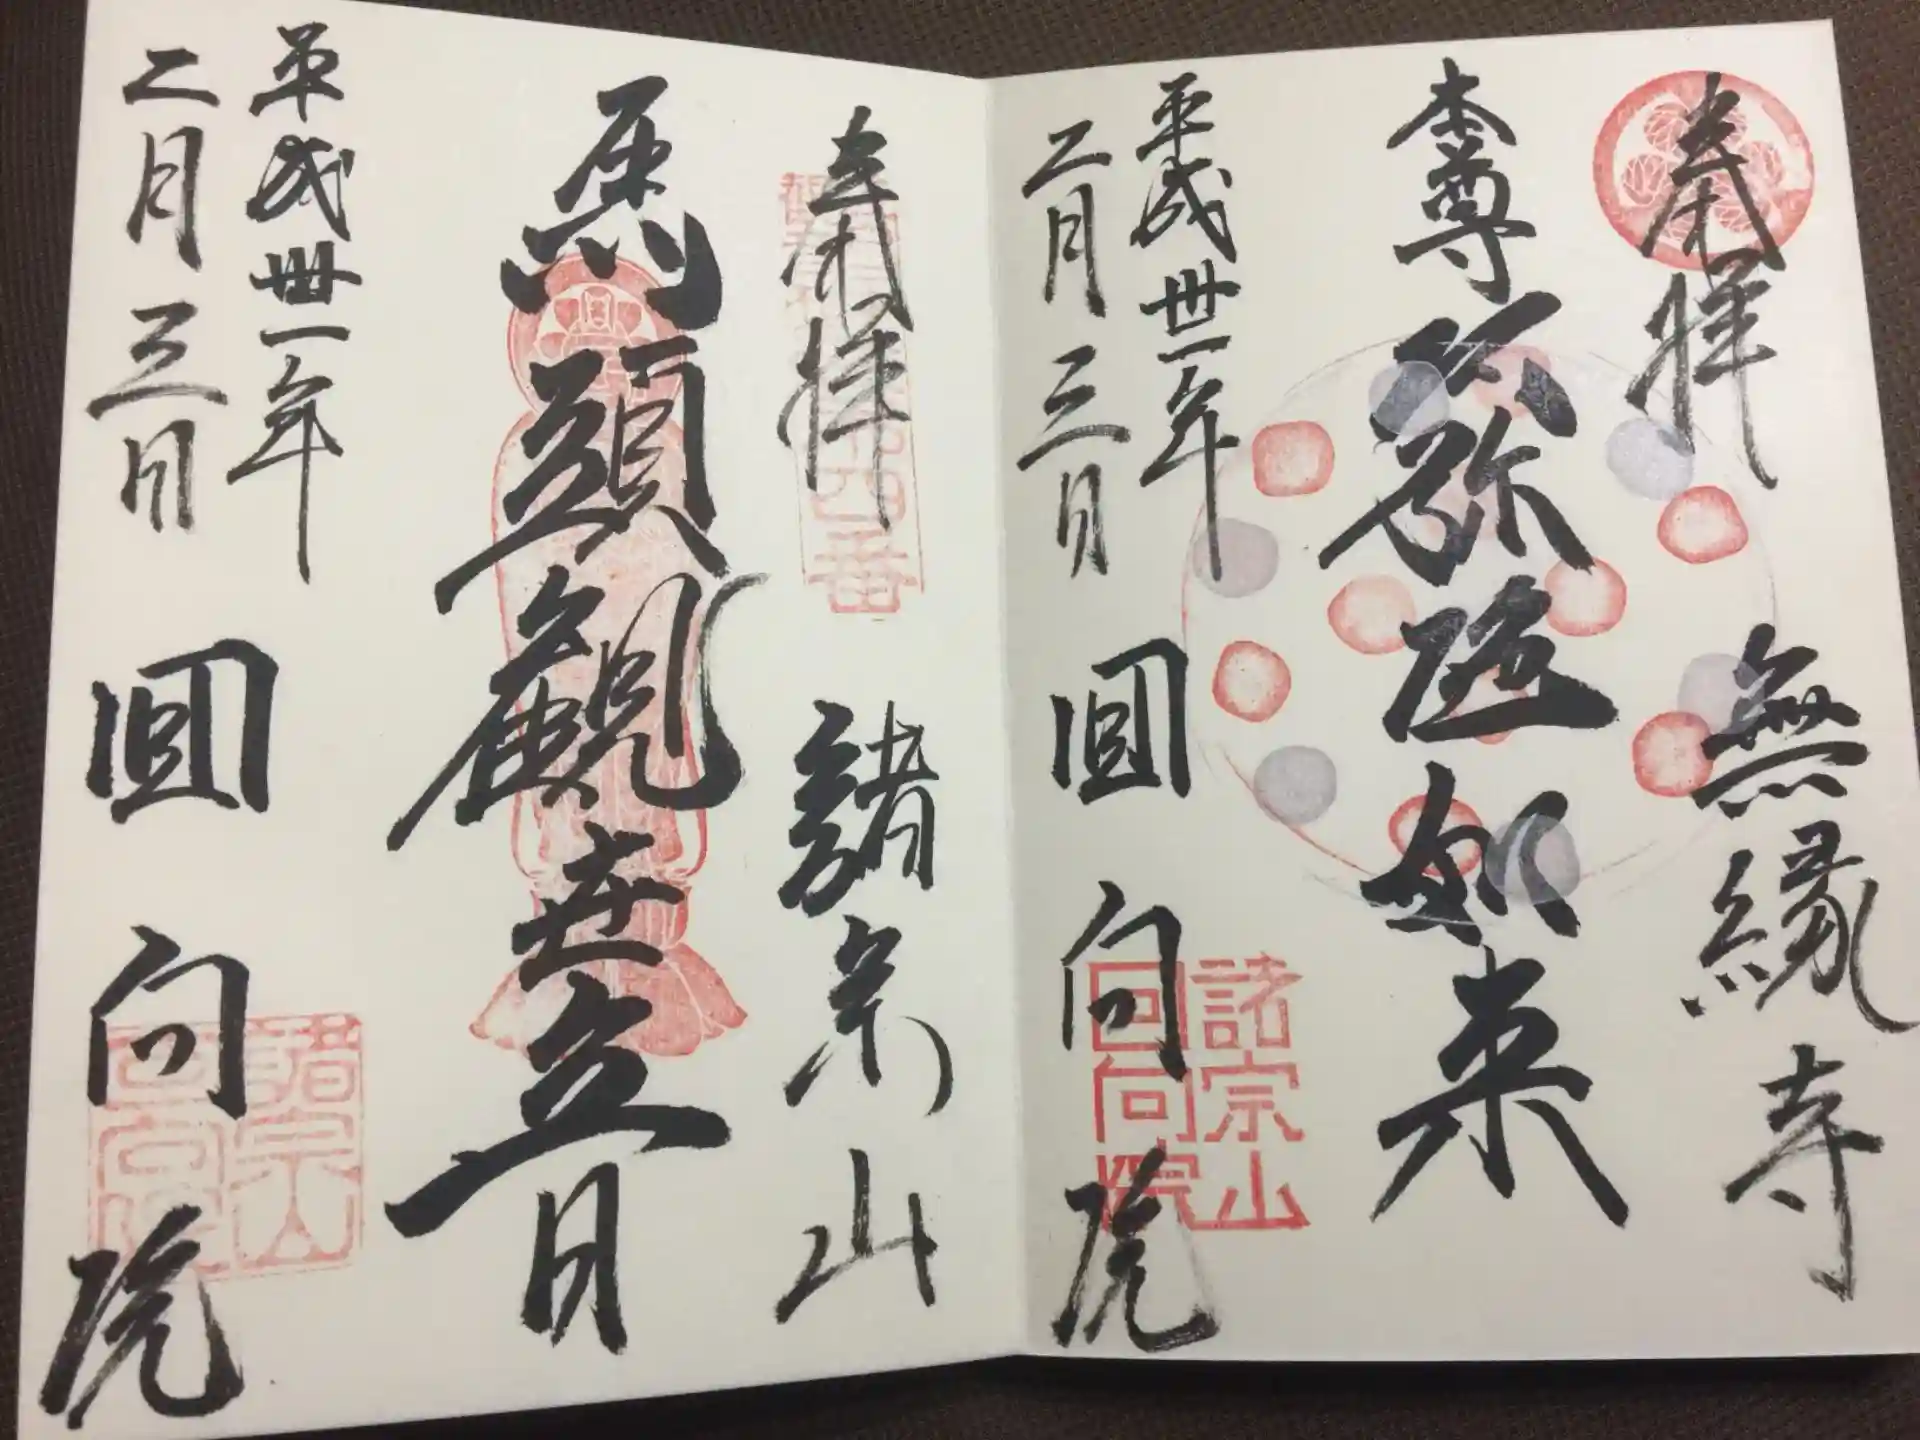 奉拝
無縁寺
本尊
弥陀如来
平成卅一年
二月三日
圓向院
諸宗山
回向院
奉拝
諸宗山
馬頭観世音
平成卅一年
二月三日
圓向院
諸宗山
四番